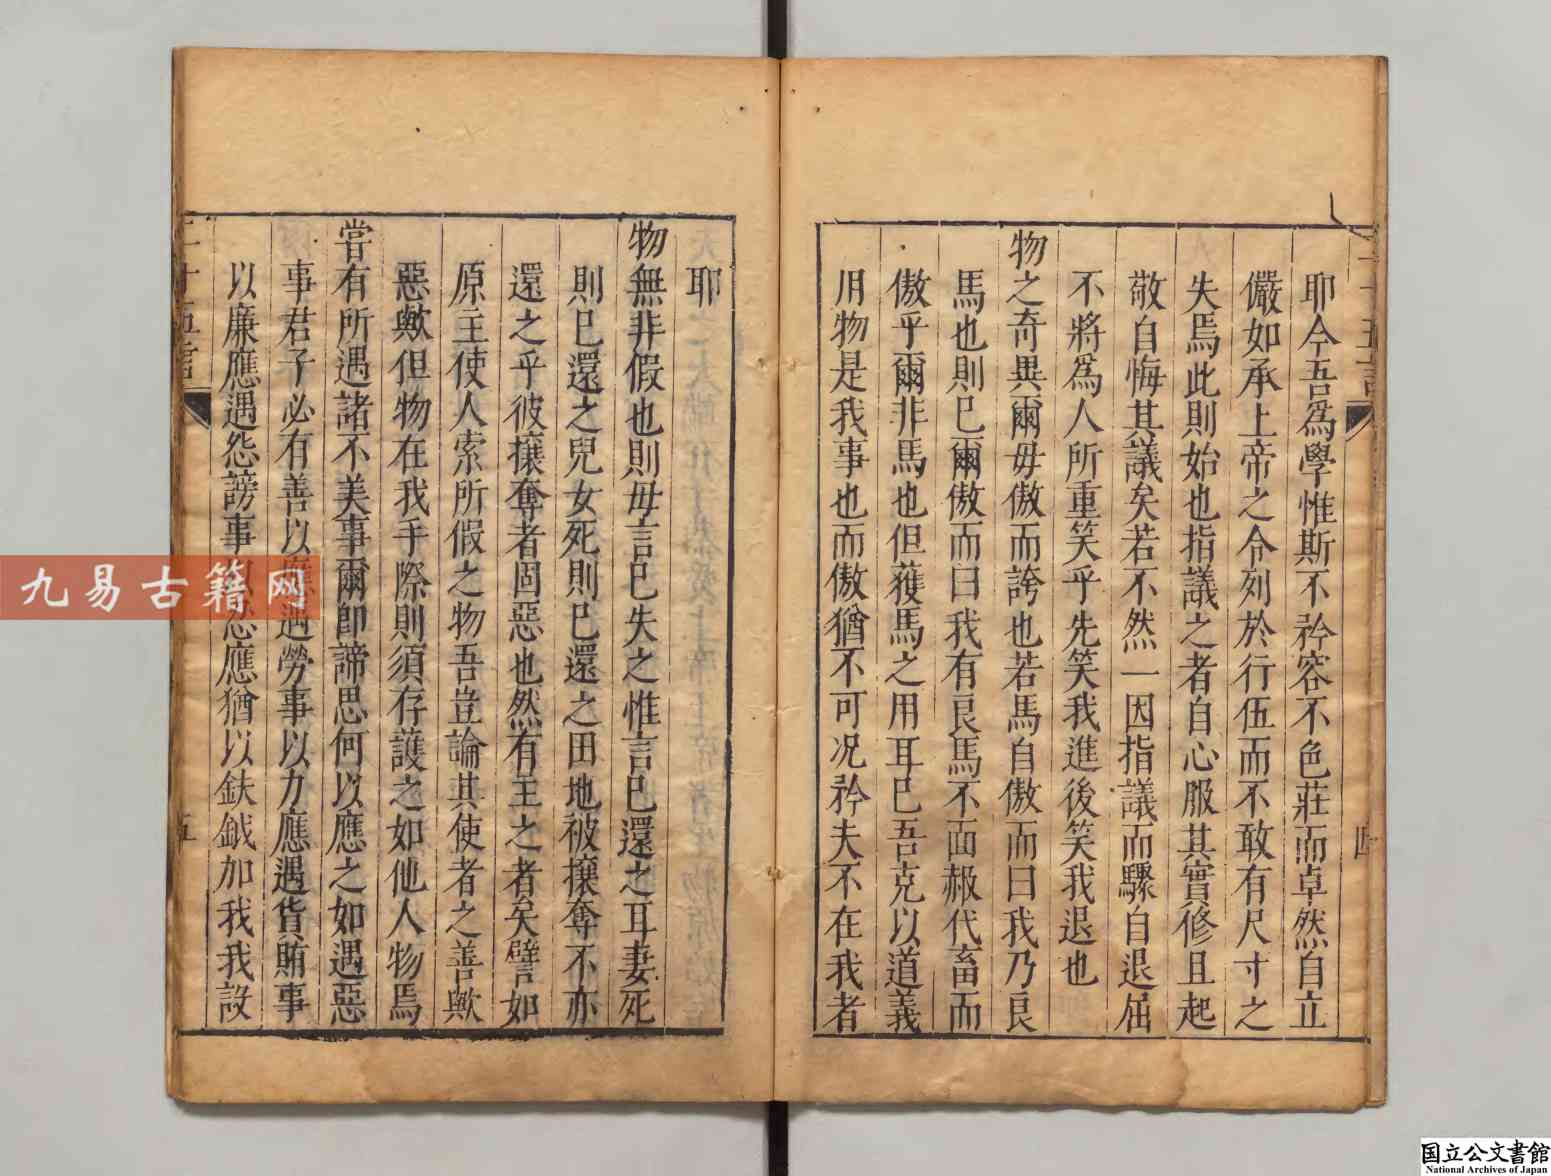 耶今吾爲學惟斯不矜容不色莊而卓然自立
儼如承上帝之令列於行伍而不敢有尺寸之
失焉此則始也指議之者自心服其實修且起
敬自悔其議矣若不然一因指議而驟自退屈
不將爲人所重笑乎先笑我進後笑我退也
物之奇異爾毋傲而誇也若馬自傲而曰我乃良
馬也則已爾傲而曰我有良馬不面赧代畜而
傲乎爾非馬也但獲馬之用耳已吾克以道義
用物是我事也而傲猶不可况矜夫不在我者
四
耶
物無非假也則毋言已失之惟言已還之耳妻死
則已還之兒女死則已還之田地被攘奪不亦
還之乎彼攘奪者固惡也然有主之者矣譬如
原主使人索所假之物吾豈論其使者之善歟
惡歟但物在我手際則須存護之如他人物焉
嘗有所遇諸不美事爾卽諦思何以應之如遇惡
事君子必有善以應遇勞事以力應遇貨賄事
以廉應遇怨謗事以忍應猶以鈇鉞加我我設
二十五言
五
九易古籍网
国立公文書館
National Archives of Japan